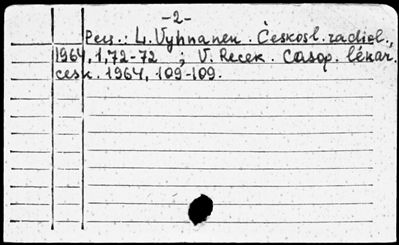 -2-
Рец.: L. Vyhnanek. Českosl. radiol.,
1964, 1, 72-72 ; V. Recek. Časop. lékar.
česk. 1964, 109-109.